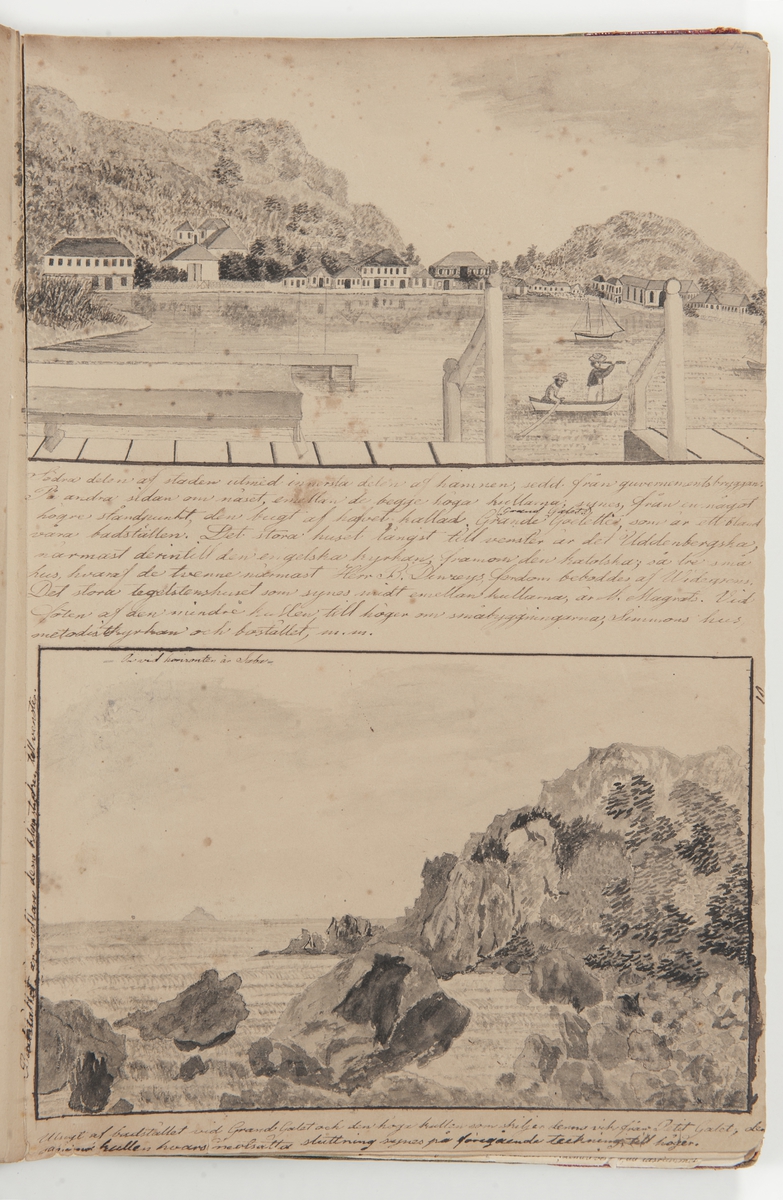 Södra delen af staden utmed innersta delen af hamnen, sedd från guvernementsbryggan.
På andra sidan om näset, emellan de begge höga kullarna, synes, från en något
högre ståndpunkt, den bugt af hafvet, kallad Grande Galet, som är ett
vara badställen. Det stora huset längst till venster är det Uddenbergska,
närmast derintill den engelska kyrkan, framom den katolska; så tre små
hus, hvaraf de tvenne närmast Herr D. fordom beboddes af
Det stora tegelstenshuset som synes midt emellan kullarna, är M. Magras. Vid
foten af den mindre kullen till höger om småbyggningarna, Simmons hus
metodistkyrkan och bostället, m.m.
— Ön vid horizonten är Saba
Badstället är mellan dem till venster.
Utsigt af badstället vid Grand Galet och den höga kullen som skiljer denna vik från Petit Galet, den
samma kullen hvars motsatta sluttning synes på föregående teckning, till höger.